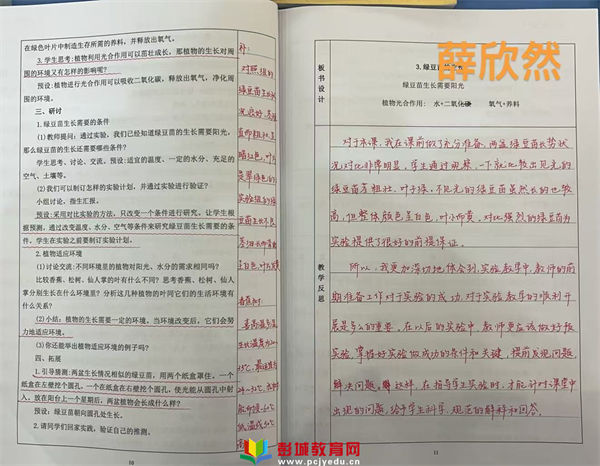 在绿色叶片中制造生存所需的养料，并释放出氧气。
3.学生思考:植物利用光合作用可以茁壮成长，那植物的生长对周
围的环境又有怎样的影响呢?
预设:植物进行光合作用可以吸收二氧化碳，释放出氧气，净化周
围的环境。
三、研讨
1.绿豆苗生长需要的条件
(1)教师提问：通过实验，我们已经知道绿豆苗的生长需要阳光，
那么绿豆苗的生长还需要哪些条件?
学生思考、讨论、交流。预设:适宜的温度、一定的水分、充足的
空气、土壤等。
(2)我们可以制订怎样的实验计划，并通过实验进行验证?
小组讨论，指生汇报。
预设:采用对比实验的方法，只改变一个条件进行研究。让学生根
据预测，通过改变温度、水分、空气等条件来研究绿豆苗生长需要的条
件，学生在实验之前要制订实验计划。
2.植物适应环境
(1)讨论交流:不同环境里的植物对阳光、水分的需求相同吗?
比较香蕉、松树、仙人掌的叶有什么不同? 思考香蕉、松树、仙人
掌分别生长在什么环境里? 分析这几种植物的叶同它们的生活环境有
什么关系?
(2)小结：植物的生长需要一定的环境，当环境改变后，它们会努
力地适应环境。
(3)你还能举出植物适应环境的例子吗?
四、拓展
1.引导猜测:两盆生长情况相似的绿豆苗，用两个纸盒罩住。一个
纸盒在左壁挖个圆孔，一个在纸盒在右壁挖个圆孔，使光能从圆孔中射
入，放在阳台上一个星期后，两盆植物会长成什么样?
预设：绿豆苗朝向圆孔处生长。
2.请同学们回家实践，验证自己的推测。
10
板书设计
3.绿豆苗
薛欣然
绿豆苗生长需要阳光
植物光合作用： 水+二氧化碳 氧气+养料
教学反思
对于本课，我在课前做了充分准备，两盆绿豆苗长势状
况对比非常明显，学生通过观察，一下就比较出见光的
绿豆苗茎粗壮，叶子绿，不见光的绿豆苗虽然长的也较
高，但整体颜色呈白色，叶小而黄，对比强烈的绿豆苗为
实验提供了很好的前提保证。
所以，我更加深切地体会到，实验教学中，教师的前
期准备工作对于实验的成功，对于实验教学的顺利开
展是多么的重要，在以后的实验中，教师更应该做好每
实验，掌握好实验做成功的条件和关键，提前发现问题，
解决问题，这样，在指导学生实验时，才能针对课堂中
出现的问题，给予学生科学、规范的解释和回答。
11
彭城教育网
www.pcjyedu.cn